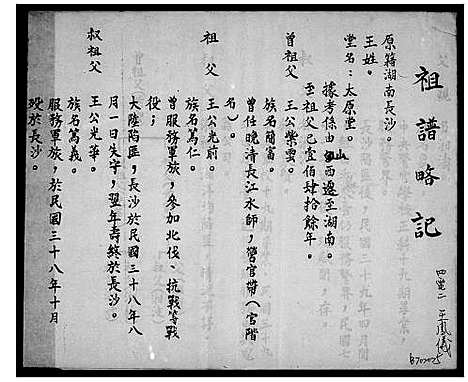 祖譜略記
四覺二 王鳳儀
B702025
原籍湖南長沙。
王姓。
堂名:太原堂。
據考係由山西遷至湖南。
至祖父已壹佰肆拾餘年。
曾祖父 王公紫雲。
族名簡富。
曾任晚清長江水師,管官帶(官階
名)。
祖 父 王公光前。
族名篤仁。
曾服務軍旅,參加北伐、抗戰等戰
役;
大陸陷匪,長沙於民國三十八年八
月一日失守,翌年壽終於長沙。
叔祖父 王公光華。
族名篤義。
服務軍旅,於民國三十八年十月
歿於長沙。